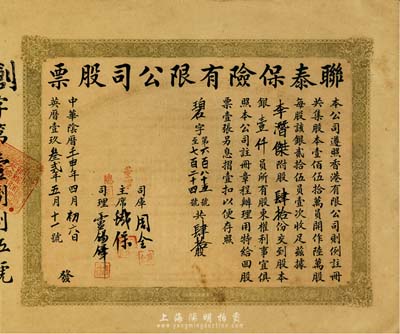 聯泰保險有限公司股票
本公司遵照香港有限公司則例註冊
共集股本壹佰伍拾萬員開作陸萬股
每股該銀貳拾伍員壹次收足茲據
李澤傑附股肆拾份交到股本
銀壹仟員所有股東權利事宜俱
照本公司註冊章程辦理用特給回股
票壹張另息摺壹扣以便存照
碧字第六百八十五號至七百二十四號共肆拾股
司庫 周全
主席 保
總司理
中華陰曆壬申年四月初六日
英曆壹玖叁貳年五月十一號 發
創字第壹捌伍號
上海陽明拍賣
www.yangmingauction.com